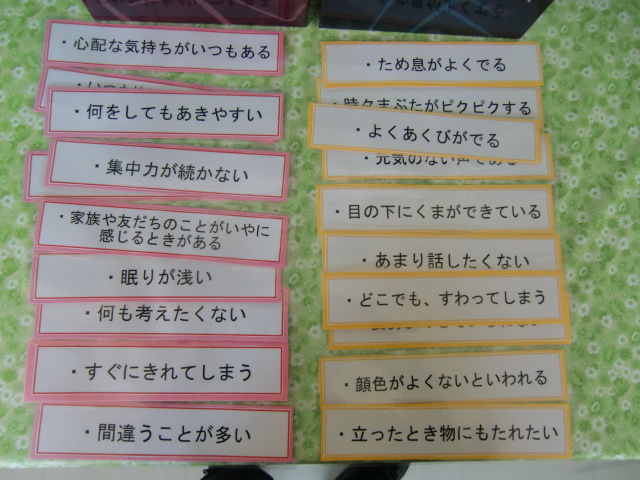 ・心配な気持ちがいつもある
・何をしてもあきやすい
・集中力が続かない
・家族や友だちのことがいやに
感じるときがある
・眠りが浅い
・何も考えたくない
・すぐにきれてしまう
・間違うことが多い
・ため息がよくでる
・時々まぶたがピクピクする
・よくあくびがでる
・元気のない声である
・目の下にくまができている
・あまり話したくない
・どこでも、すわってしまう
・顔色がよくないといわれる
・立ったとき物にもたれたい